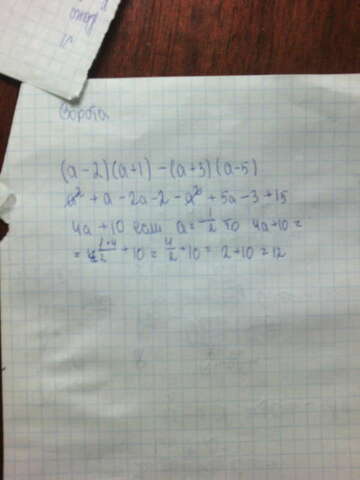 (a-2)(a+1)-(a+3)(a-5)
a² + a - 2a - 2 - a² + 5a - 3 + 15
4a + 10 если a = 1/2 то 4a+10 =
+ 10 = 4/2 + 10 = 2+10 = 12